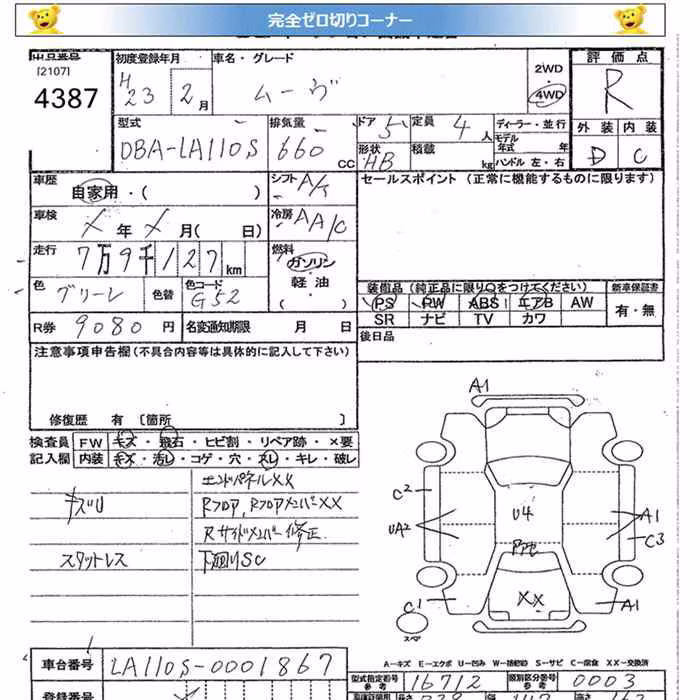 完全ゼロ切りコーナー
出品番号
[2107]
4387
初度登録年月
H 23 2 月
車名・グレード
ムーヴ
2WD
4WD
評価点
R
外装 内装
D C
型式
DBA-LA110S
排気量
660 CC
ドア 5
定員 4 人
形状 HB
積載 kg
ディーラー・並行
モデル年式 年
ハンドル 左・右
車歴
自家用・( )
シフト A/T
セールスポイント (正常に機能するものに限ります)
車検
X 年 X 月( 日)
冷房 AA/C
走行
7万9千127km
燃料
ガソリン・
軽油・
( )
色
グリーン
色替
色コード
G52
装備品 (純正品に限り○をつけてください)
新車保証書
PS PW ABS エアB AW
有・無
SR ナビ TV カワ
R券 9080 円
名変通知期限 月 日
後日品
注意事項申告欄(不具合内容等は具体的に記入して下さい)
修復歴 有 〔箇所 〕
検査員 FW キズ・飛石・ヒビ割・リペア跡・×要
記入欄 内装 キズ・汚レ・コゲ・穴・スレ・キレ・破レ
エンドパネルXX
キズU
Rフロア、RフロアメンバーXX
Rサイドメンバー修正
スタットレス
下廻りSC
A1
C2
UA2
U4
A1
C3
XX
C1
A1
スペア
A－キズ E－エクボ U－凹み W－補修跡 S－サビ C－腐食 XX－交換済
車台番号
LA110S-0001867
型式指定番号 参考
16712
類別区分番号 参考
0003
登録番号